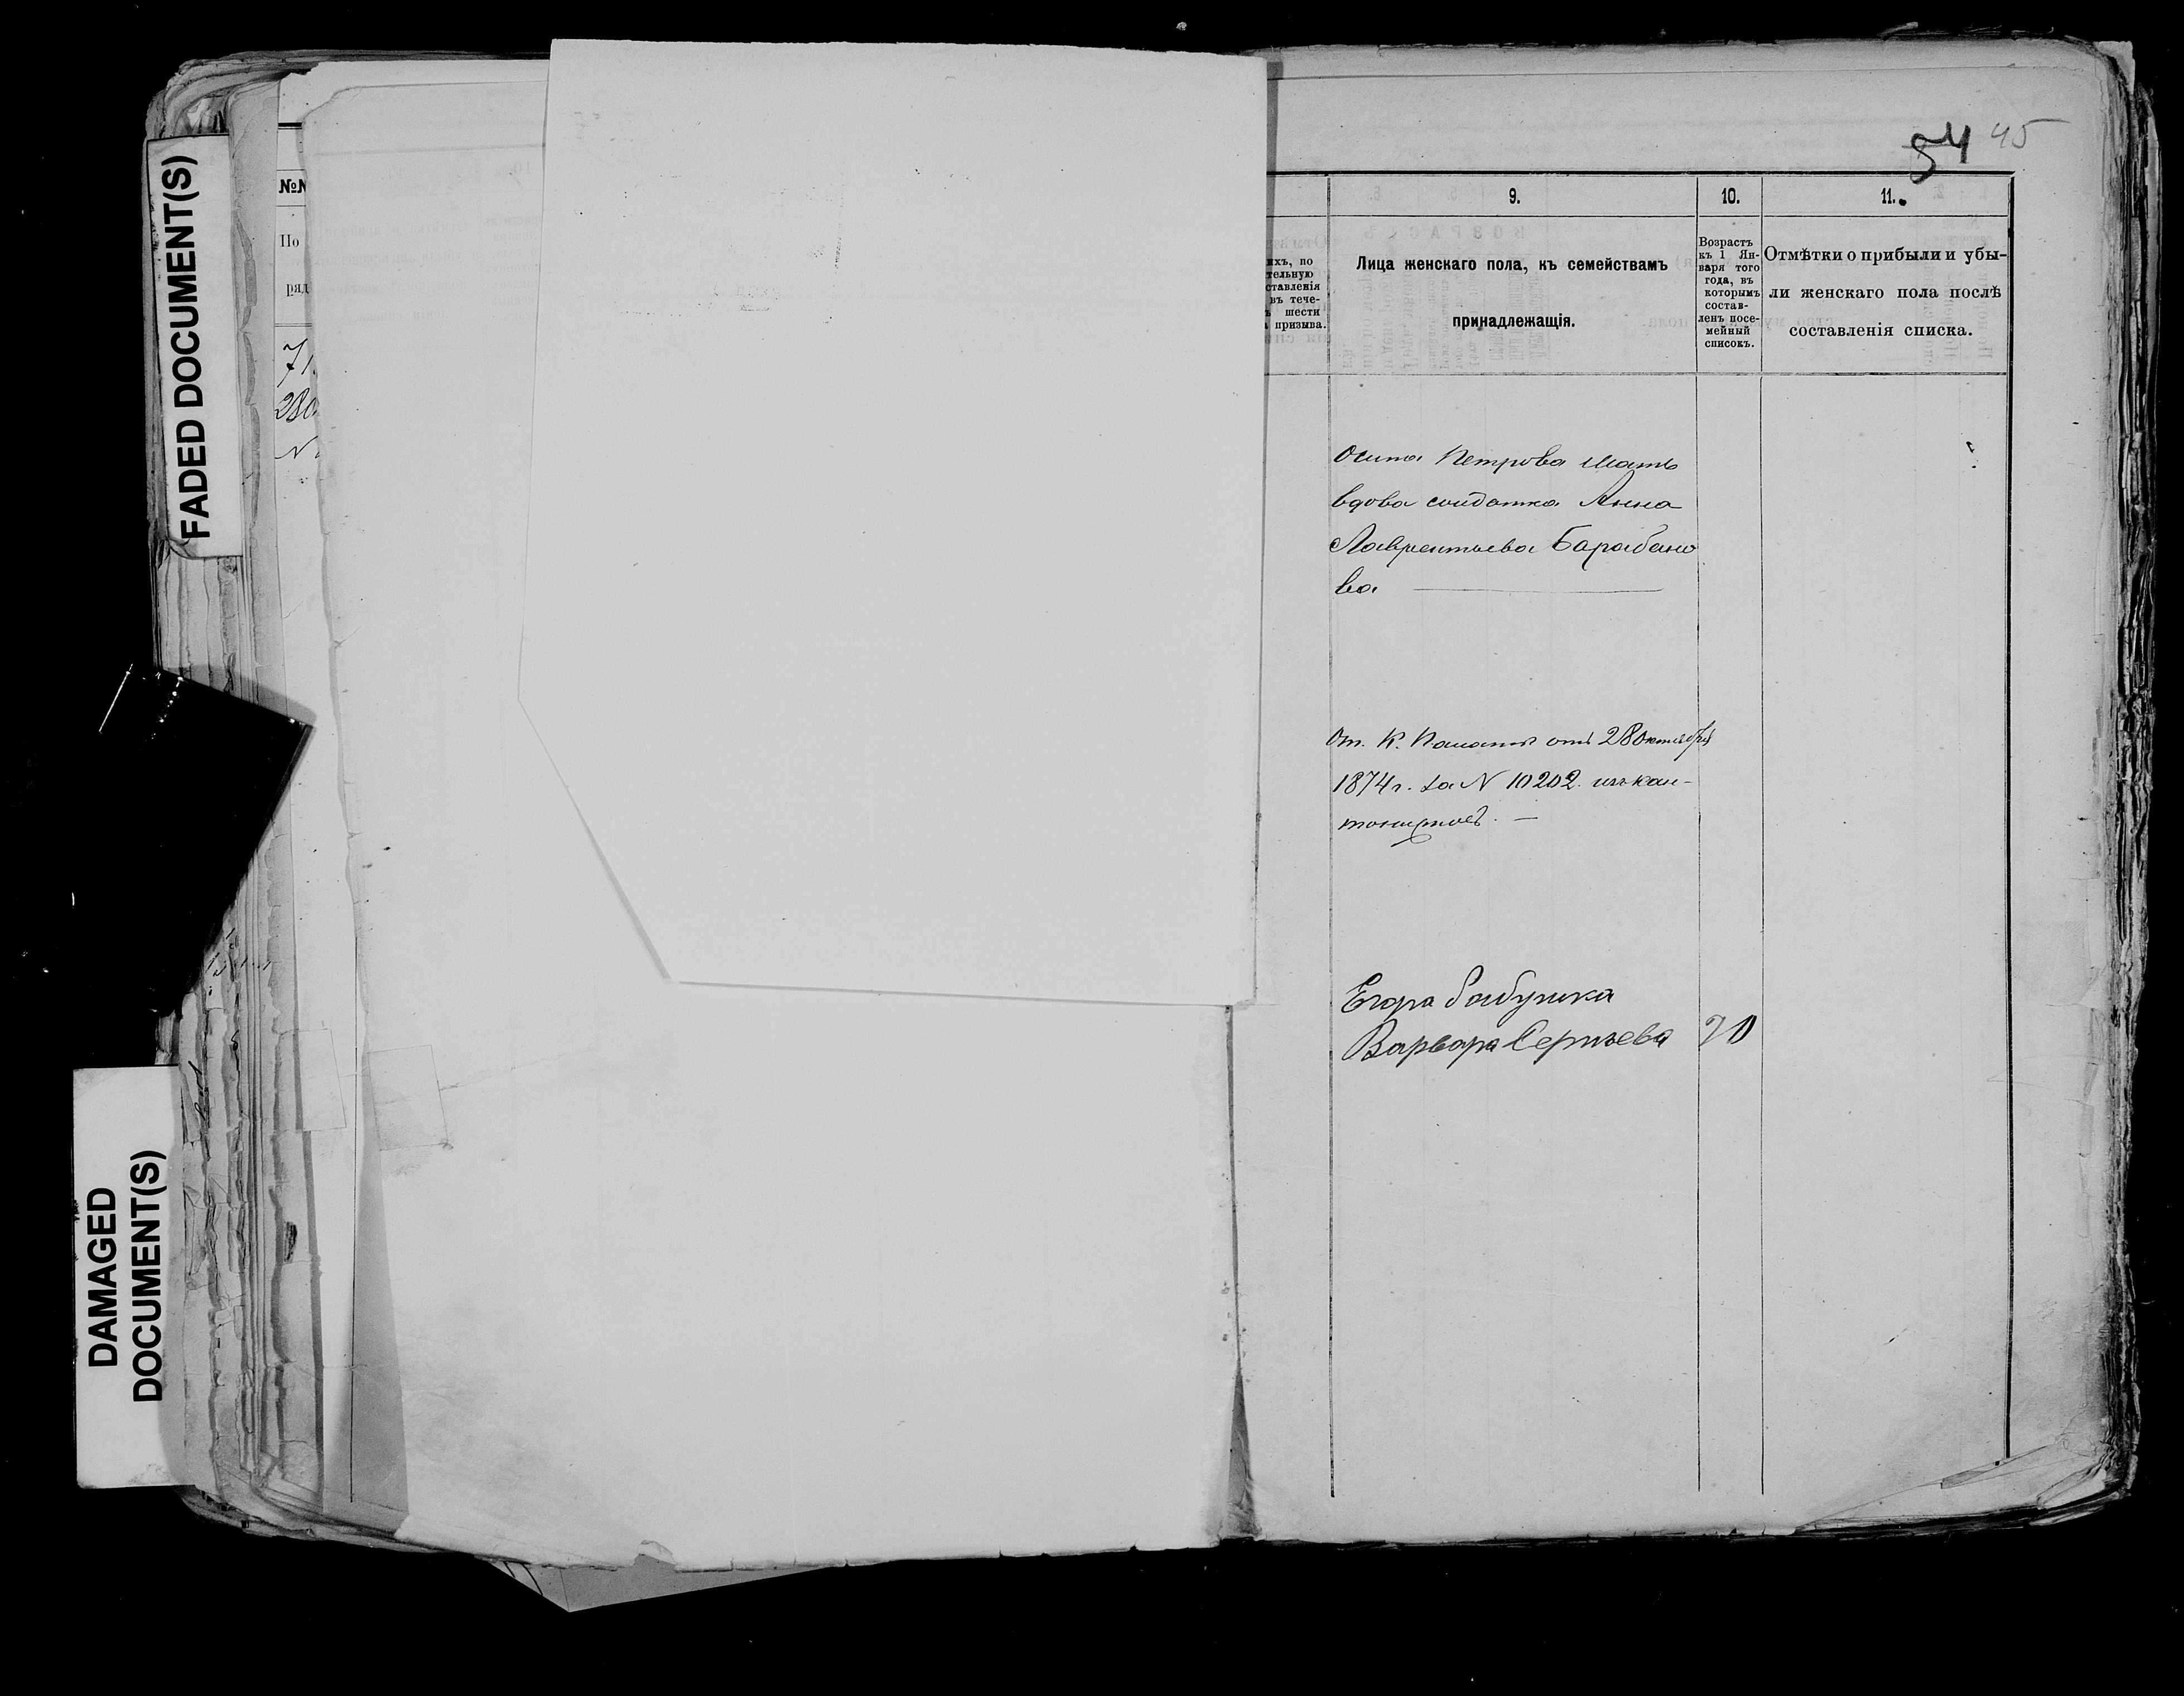 FADED DOCUMENT(S)
DAMAGED
DOCUMENT(S)
№№
По
ряд
71
280
54 45
9.
10.
11.
ихъ, по
тельную
ставленія
въ тече-
ъ шести
призыва.
Лица женскаго пола, къ семействамъ
принадлежащія.
Возрастъ
къ 1 Ян-
варя того
года, въ
которымъ
состав-
ленъ посе-
мейный
списокъ.
Отмѣтки о прибыли и убы-
ли женскаго пола послѣ
составленія списка.
Осипа Петрова мать
вдова солдатка Анна
Лаврентьева Барабано
ва
От. К. Палаты отъ 28 октября
1874 г. за N 10202 изъ кан-
тонистовъ. —
Егора бабушка
Варвара Сергѣева 70